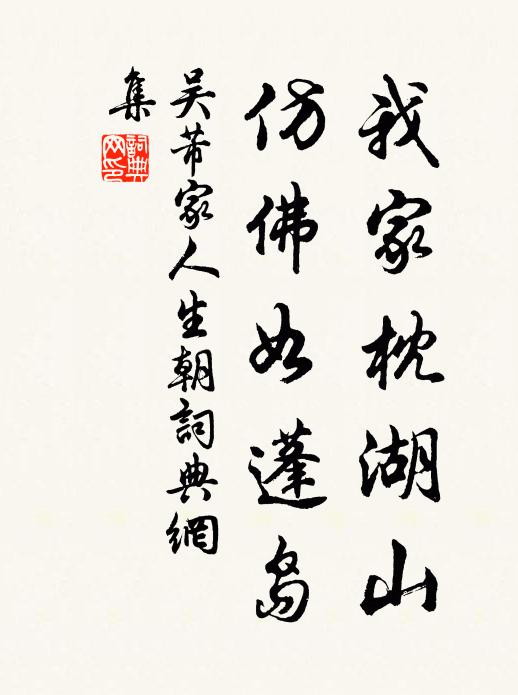 我家枕湖山
仿佛如蓬岛
吴芾家人生朝詞典網
集
詞典
网印